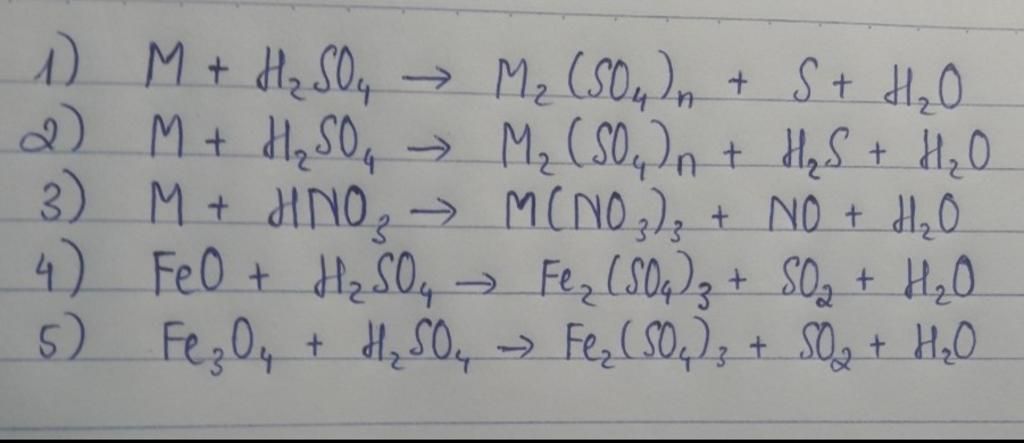 1) M + H₂SO₄ → M₂(SO₄)ₙ + S + H₂O
2) M + H₂SO₄ → M₂(SO₄)ₙ + H₂S + H₂O
3) M + HNO₃ → M(NO₃)₃ + NO + H₂O
4) FeO + H₂SO₄ → Fe₂(SO₄)₃ + SO₂ + H₂O
5) Fe₃O₄ + H₂SO₄ → Fe₂(SO₄)₃ + SO₂ + H₂O